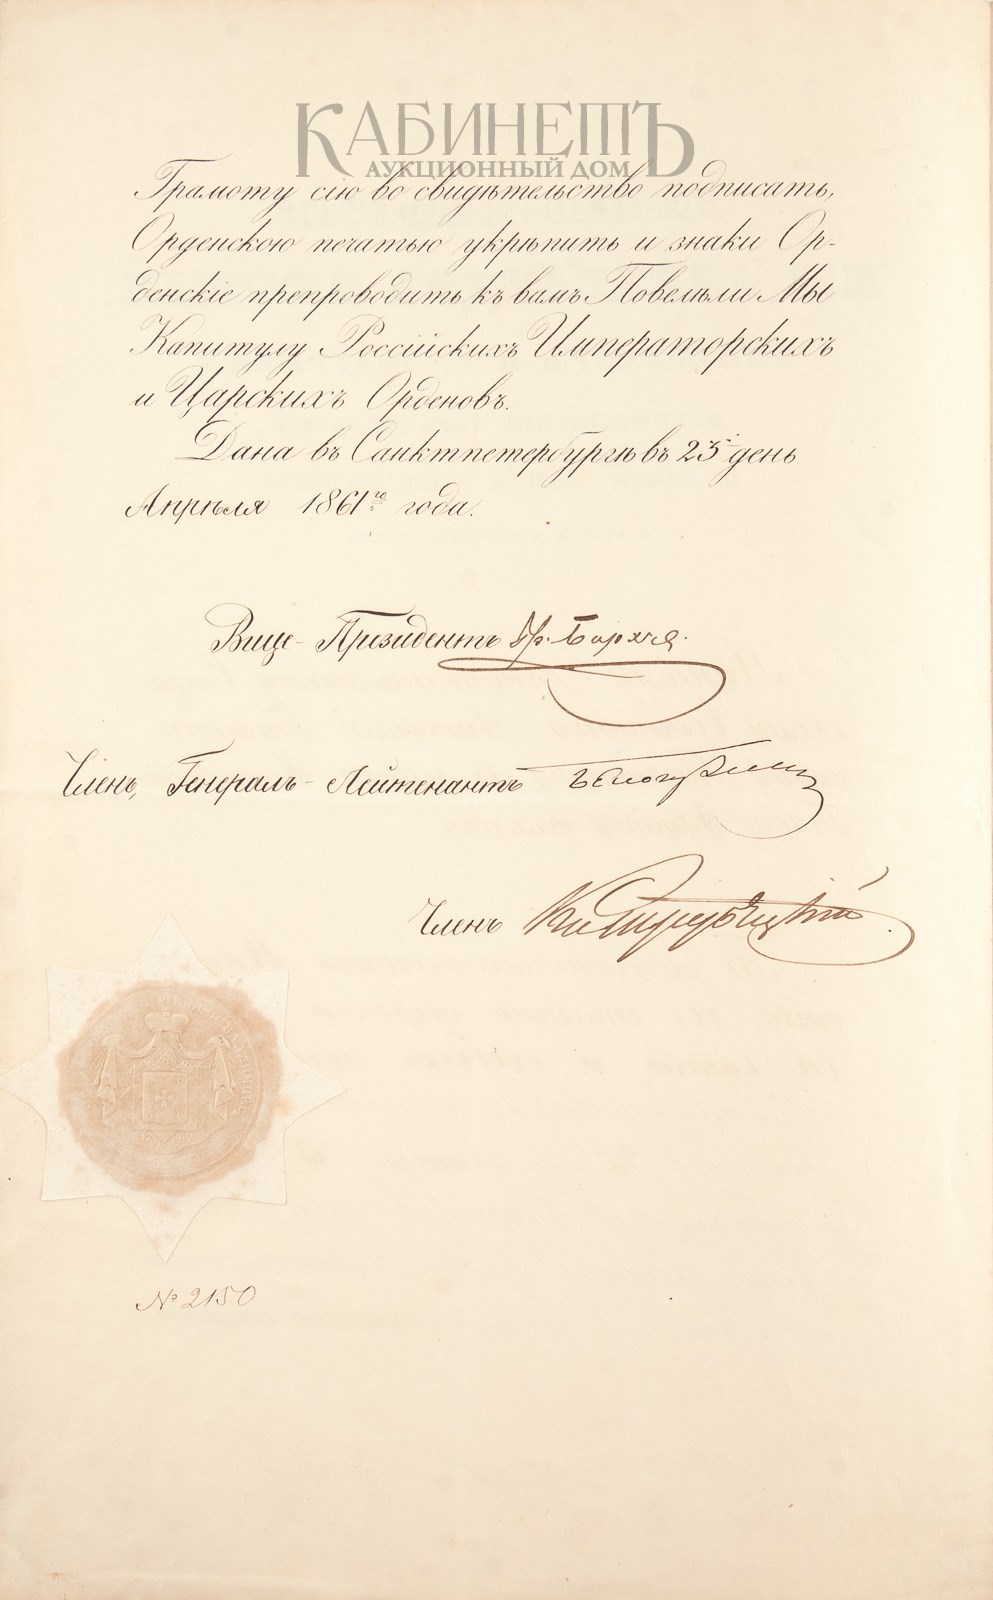 КАБИНЕТЪ
АУКЦИОННЫЙ ДОМ
Грамоту сію во свидѣтельство подписать,
Орденскою печатью укрѣпить и знаки Ор-
денскіе препроводить къ вамъ Повелѣли Мы
Капитулу Россійскихъ Императорскихъ
и Царскихъ Орденовъ.
Дана въ Санктпетербургѣ въ 23й день
Апрѣля 1861го года.
Вице-Президентъ Гр. Борхъ
Членъ, Генералъ-Лейтенантъ
Членъ
№ 2150